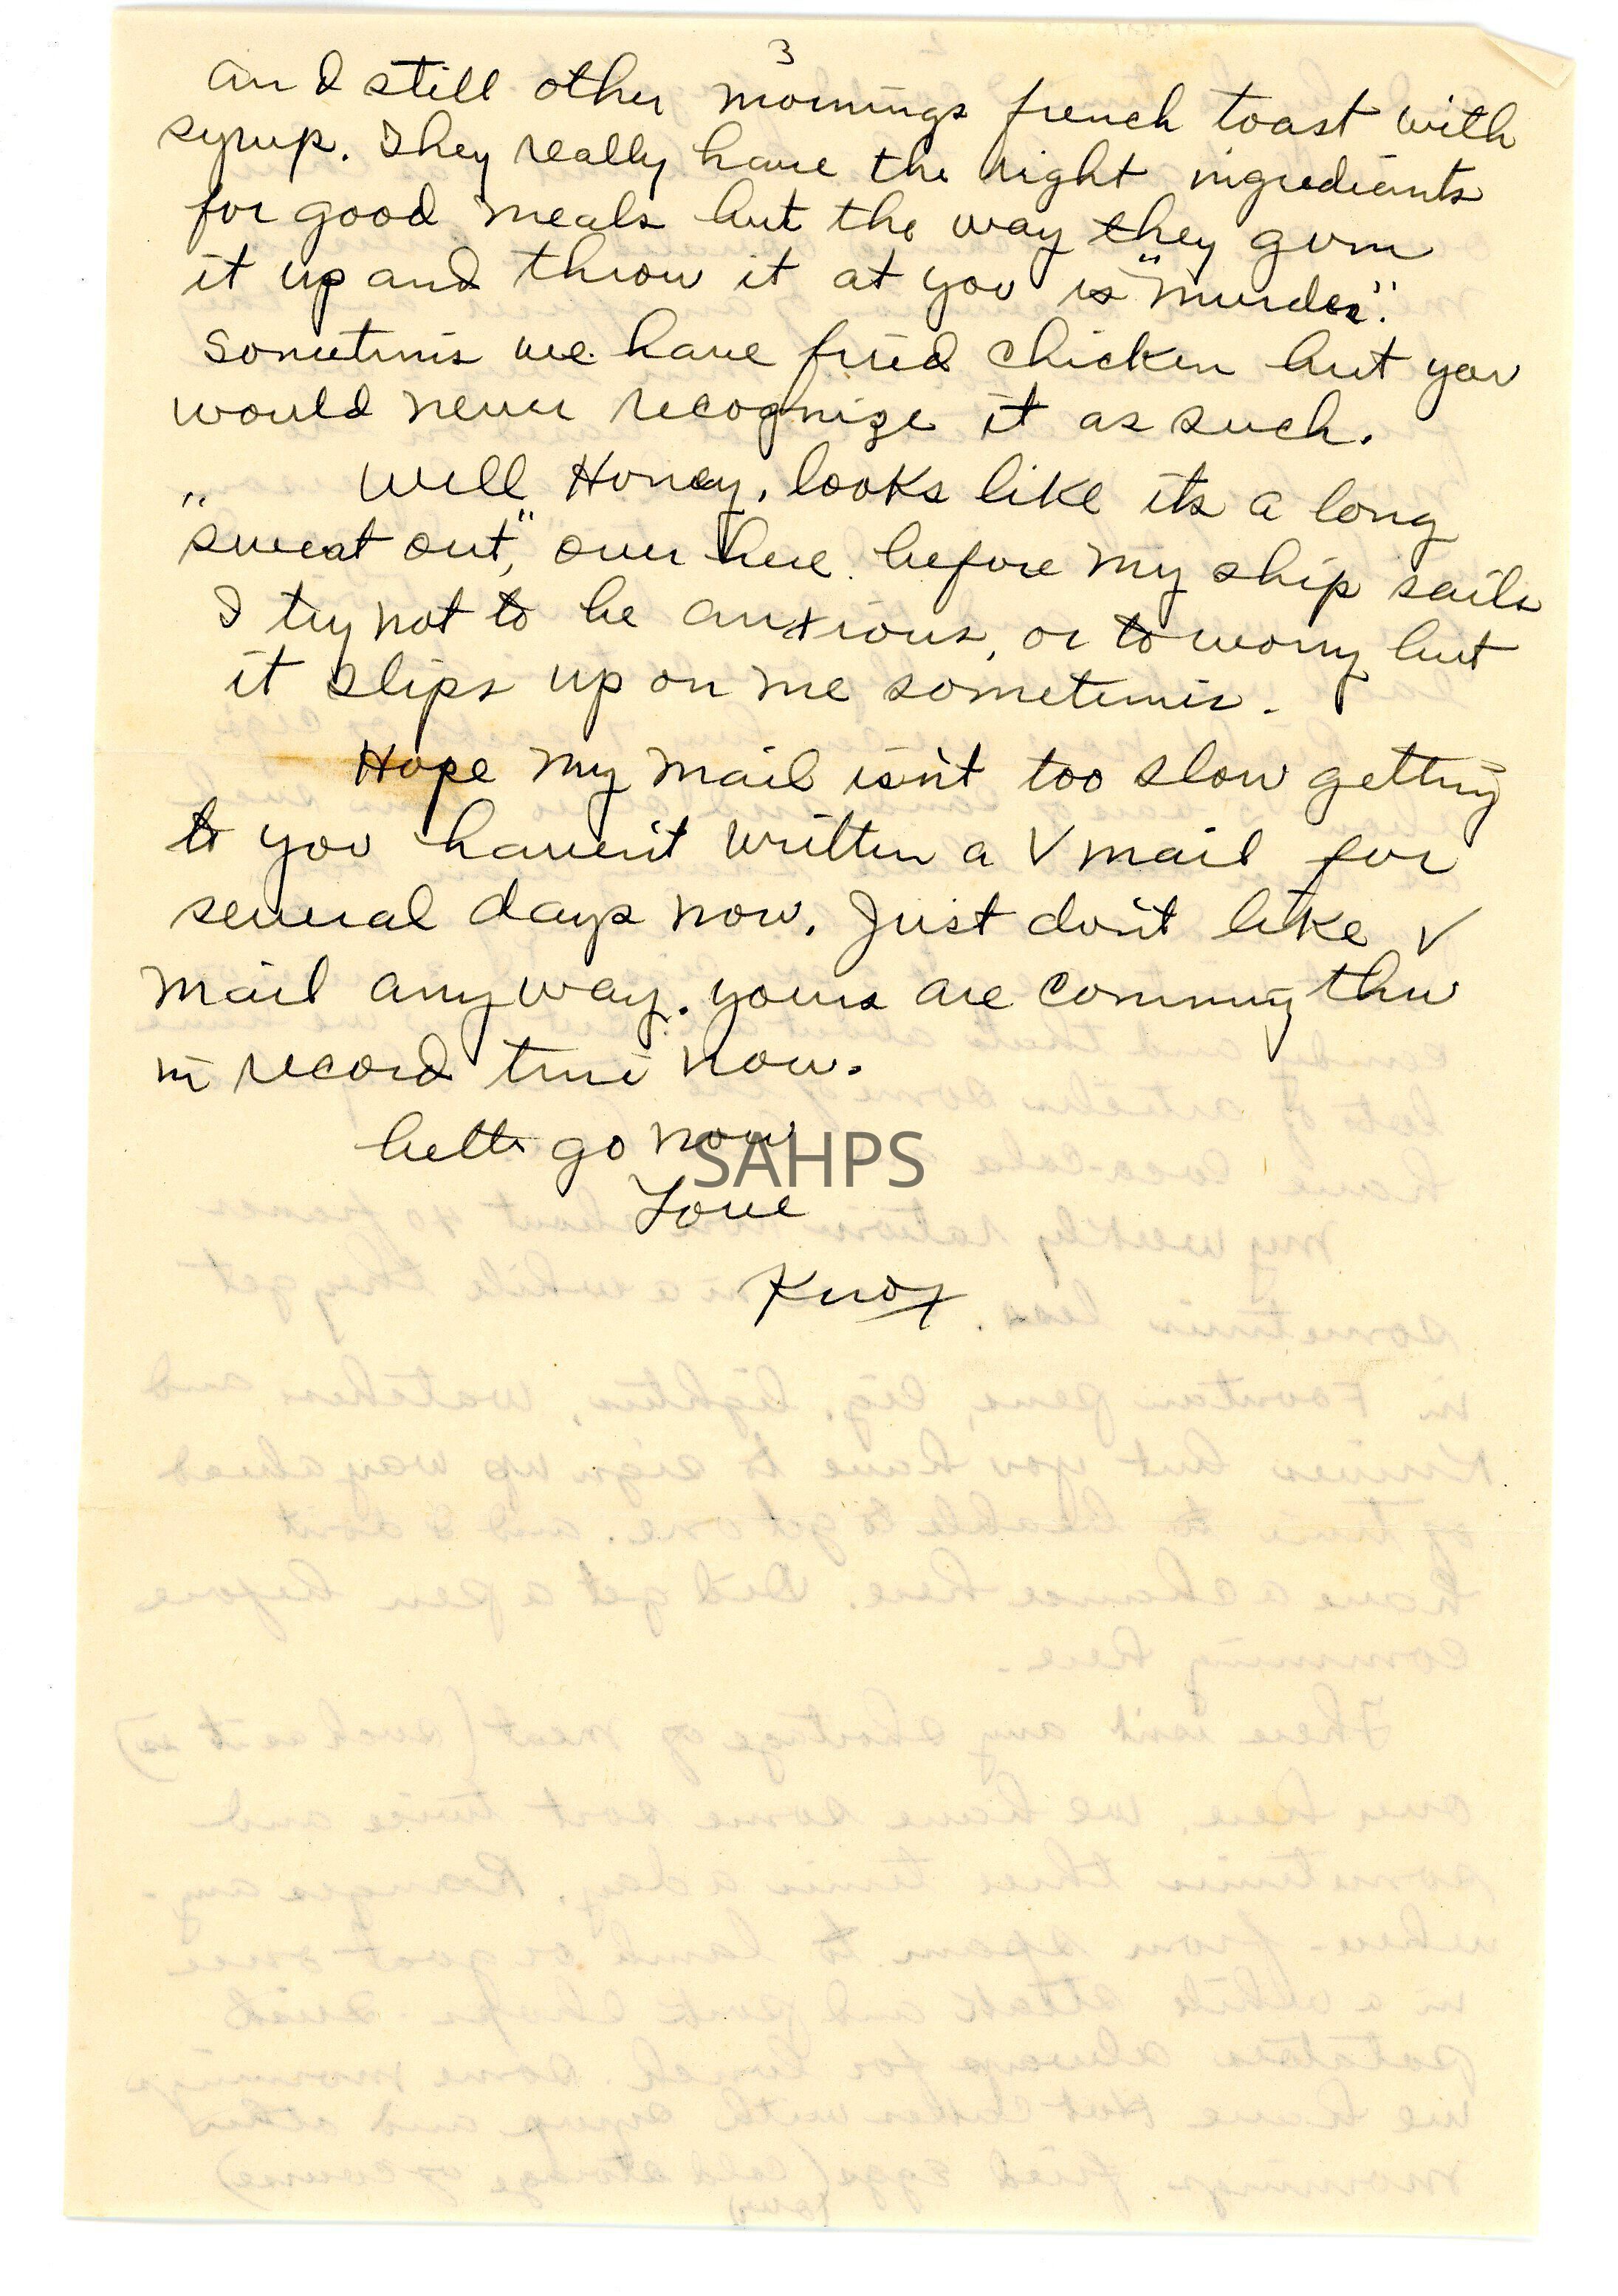 3
and still other mornings french toast with
syrup. They really have the right ingrediants
for good meals but the way they gum
it up and throw it at you is "murder".
Sometimes we have fried chicken but you
would never recognize it as such.
Well Honey, looks like its a long
"sweat out", over here before my ship sails
I try not to be anxious, or to worry but
it slips up on me sometimes.
Hope my mail isn't too slow getting
to you haven't written a V mail for
several days now. Just don't like V
mail anyway. yours are comming thru
in record time now.
better go now
SAHPS
Love
Knox